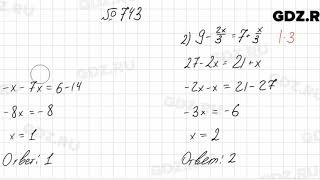 № 743
GDZ.R
-x - 7x = 6 - 14
-8x = -8
x = 1
Ответ: 1
2) 9 - 2x/3 = 7 + x/3 | · 3
27 - 2x = 21 + x
-2x - x = 21 - 27
-3x = -6
x = 2
Ответ: 2